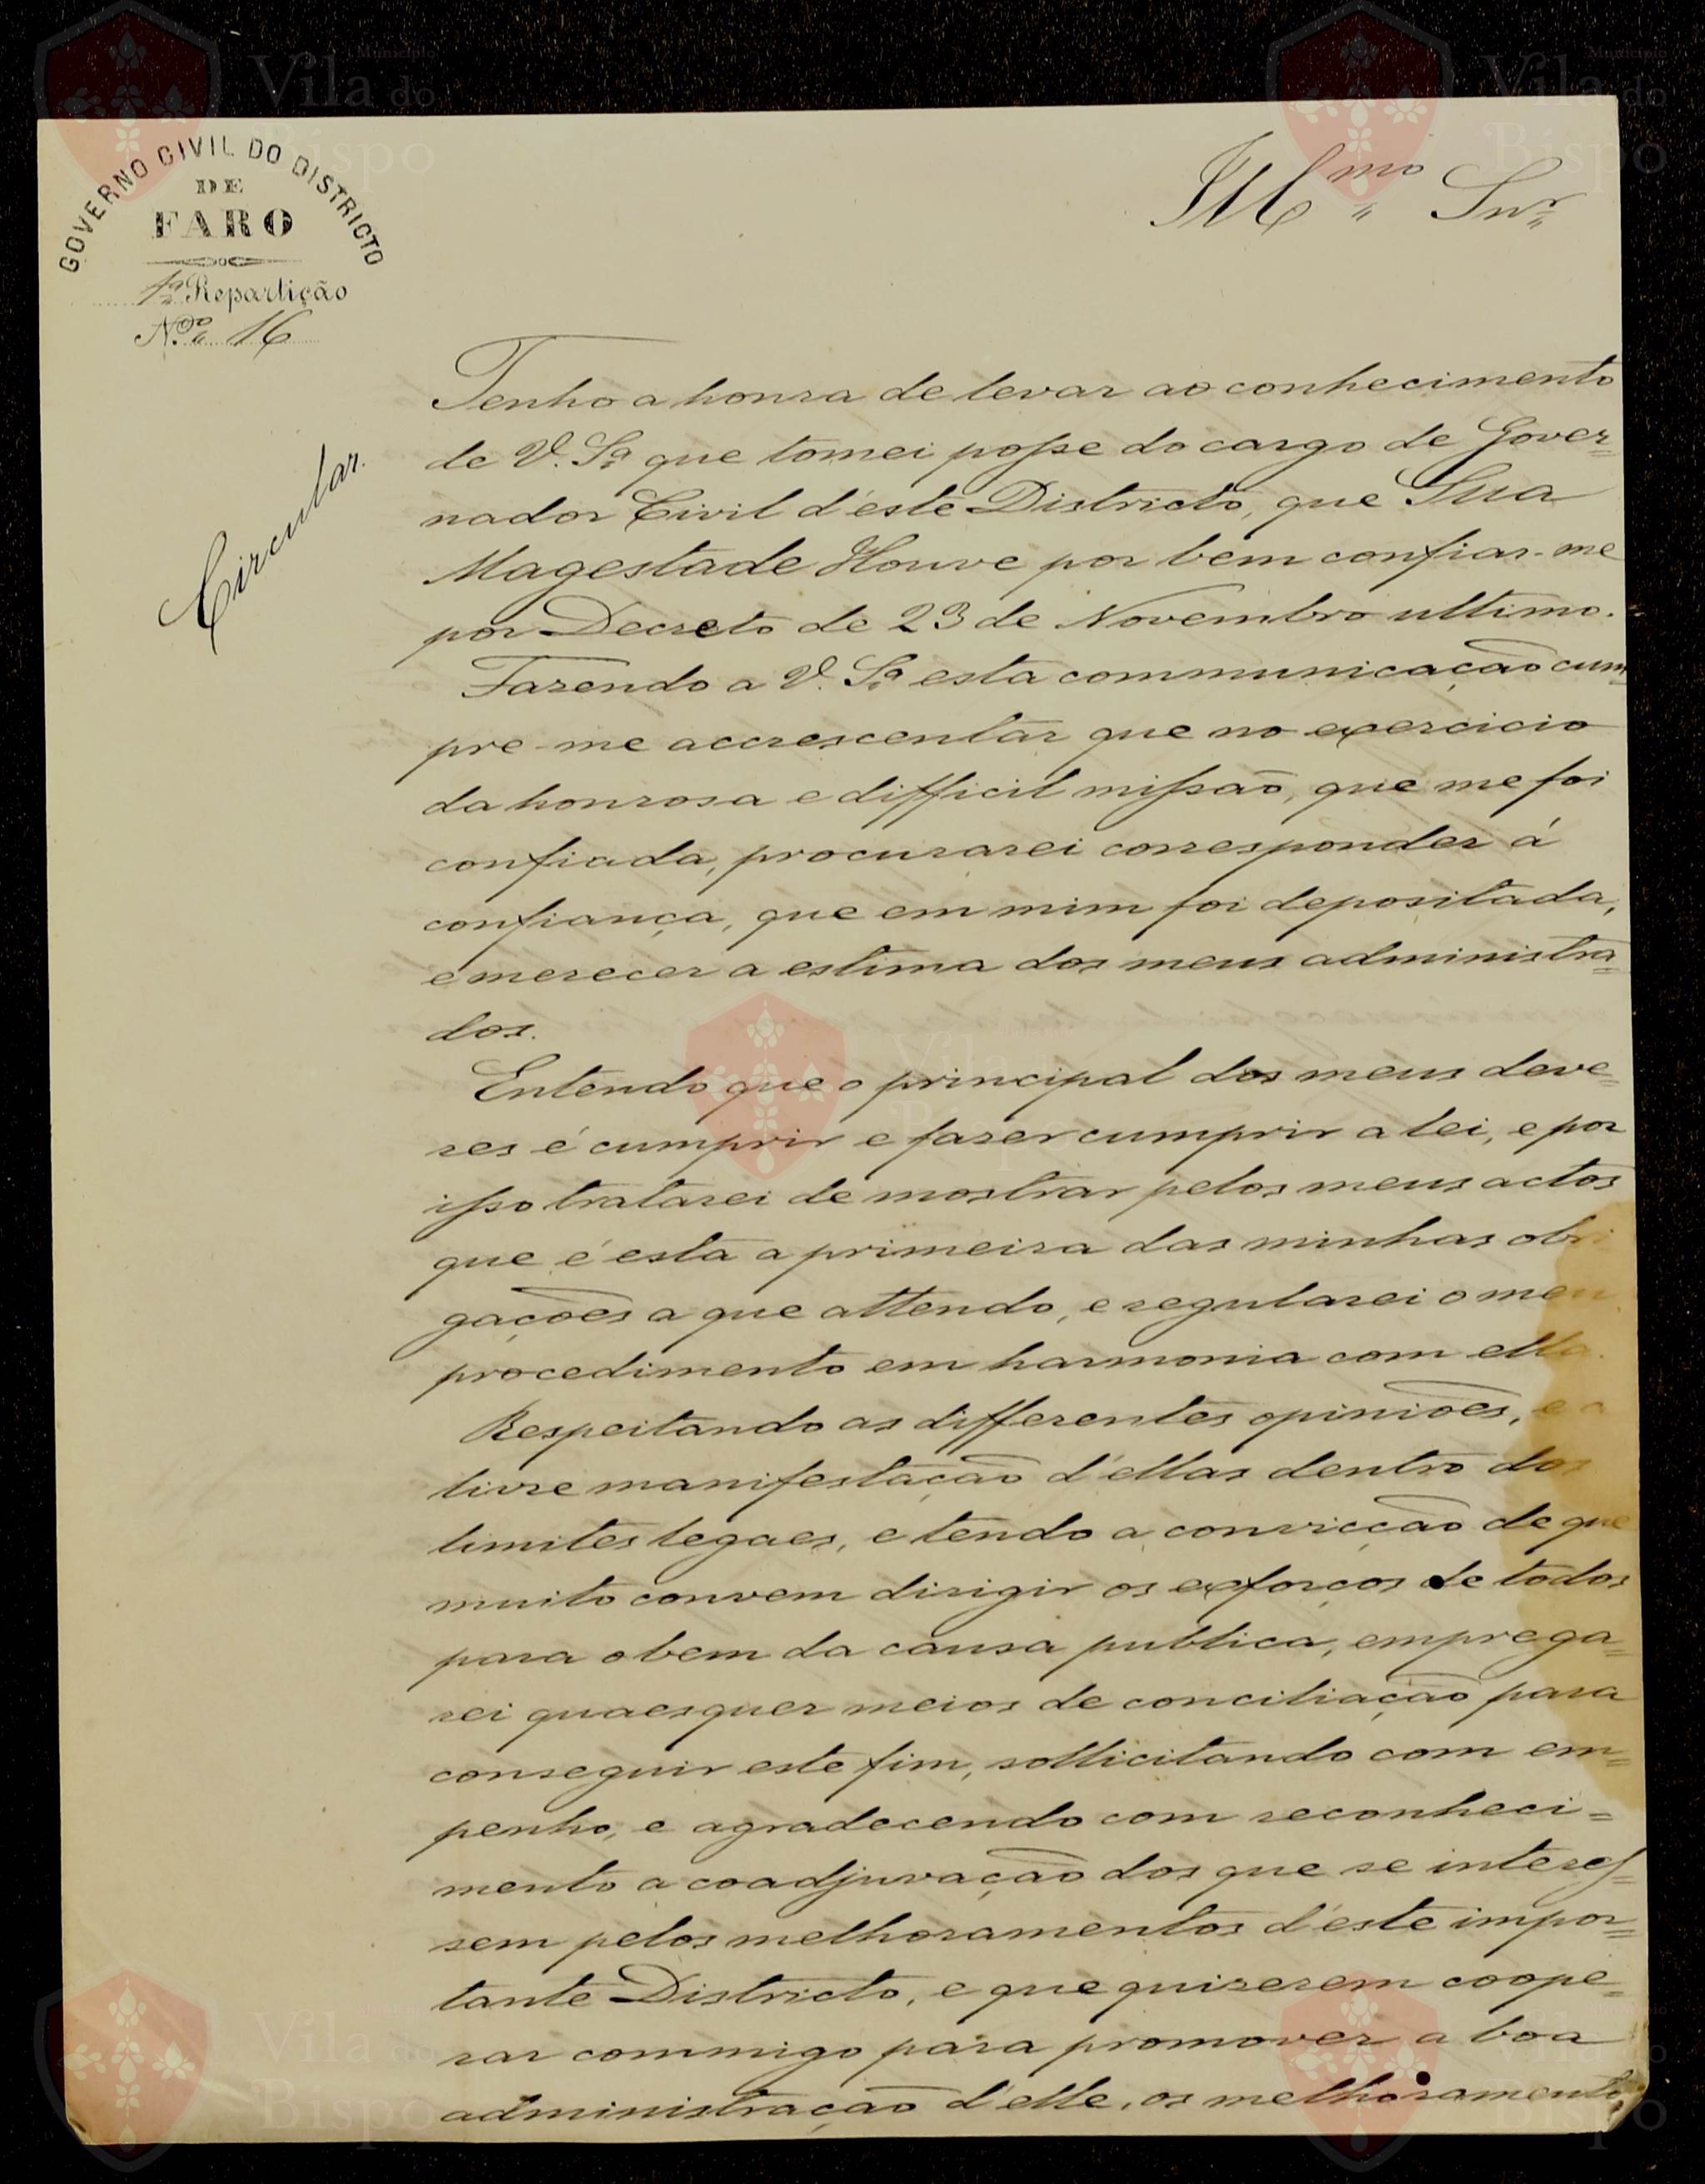 GOVERNO CIVIL DO DISTRICTO
DE
FARO
1ª Repartição
N.º 16
Circular.
Illmo Snr
Tenho a honra de levar ao conhecimento
de V. Sª que tomei posse do cargo de Gover=
nador Civil d'este Districto, que Sua
Magestade Houve por bem confiar-me
por Decreto de 23 de Novembro ultimo.
Fazendo a V. Sª esta communicação cum=
pre-me accrescentar que no exercicio
da honrosa e difficil missão, que me foi
confiada, procurarei corresponder á
confiança, que em mim foi depositada,
e merecer a estima dos meus administra=
dos.
Entendo que o principal dos meus deve=
res é cumprir e fazer cumprir a lei, e por
isso tratarei de mostrar pelos meus actos
que é esta a primeira das minhas obri
gações a que attendo, e regularei o meu
procedimento em harmonia com ella.
Respeitando as differentes opiniões, e a
livre manifestação d'ellas dentro dos
limites legaes, e tendo a convicção de que
muito convem dirigir os exforços de todos
para o bem da causa publica, emprega=
rei quaesquer meios de conciliação para
conseguir este fim, sollicitando com em=
penho, e agradecendo com reconheci=
mento a coadjuvação dos que se interes=
sem pelos melhoramentos d'este impor=
tante Districto, e que quizerem coope=
rar commigo para promover a boa
administração d'elle, os melhoramentos,
Município
Vila do
Bispo